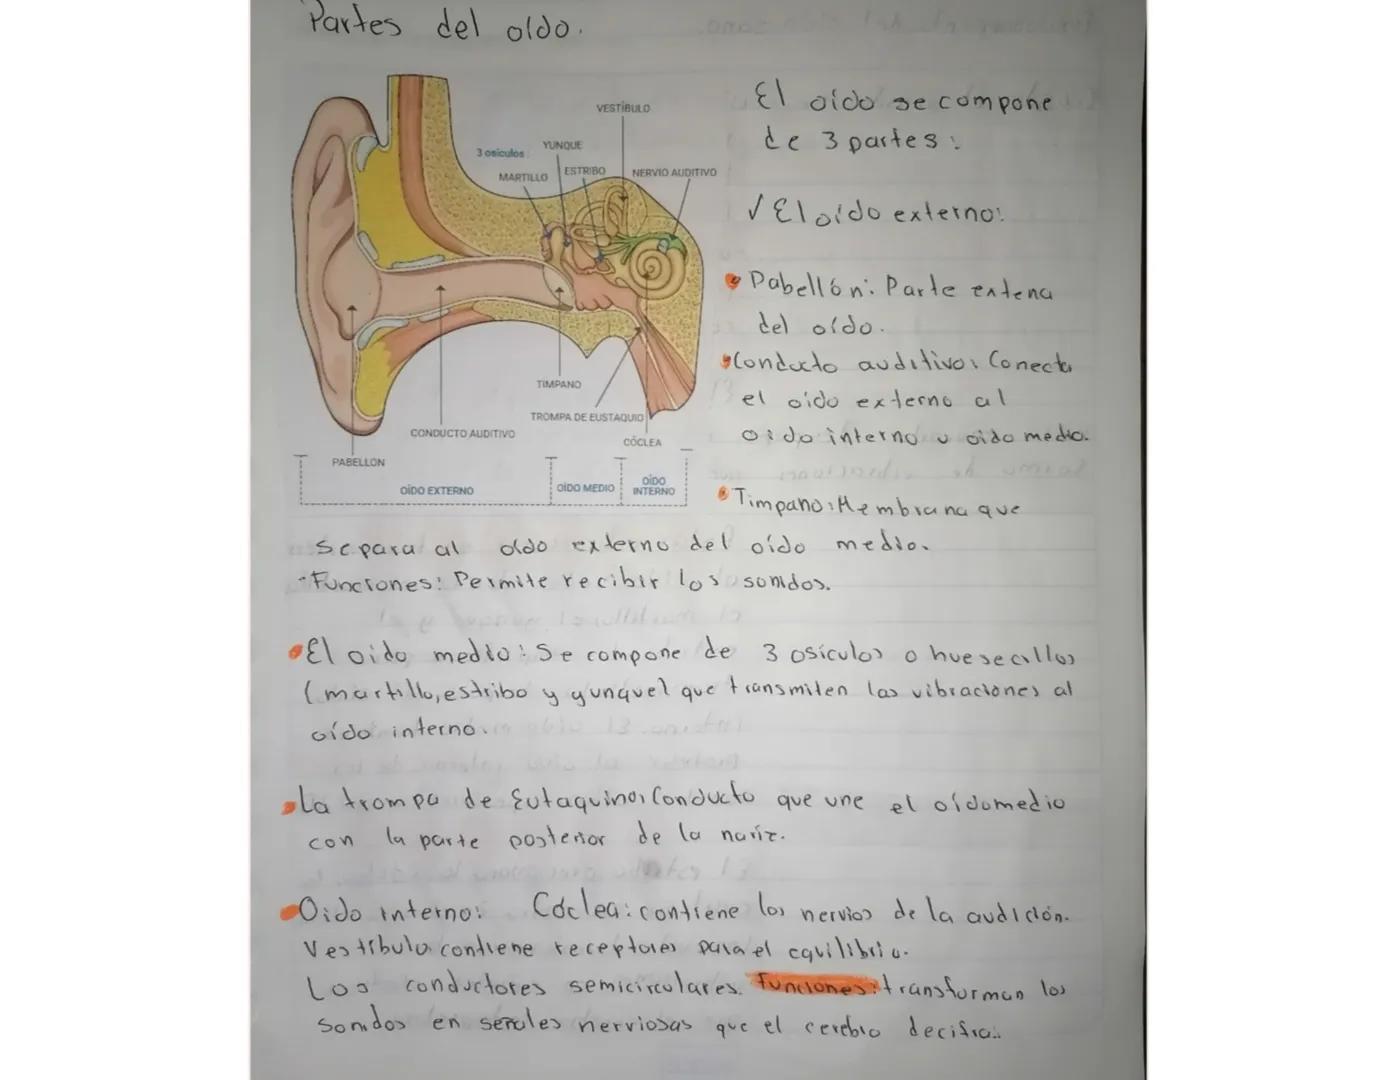 Partes del oído.
VESTÍBULO
YUNQUE
3 osículos
MARTILLO
ESTRIBO
NERVIO AUDITIVO
TÍMPANO
TROMPA DE EUSTAQUIO
CONDUCTO AUDITIVO
CÓCLEA
PABELLÓN
OÍDO EXTERNO
OÍDO MEDIO
OÍDO
INTERNO
El oído se compone
de 3 partes:
✓ El oído externo:
• Pabellón: Parte extena
del oído.
• Conducto auditivo: Conecta
el oido externo al
oido interno u oido medio.
• Timpano: Membrana que
separa al oído externo del oído medio.
- Funciones: Permite recibir los sonidos.
• El oido medio: Se compone de 3 osículos o huesecillos
(martillo, estribo y yunque) que transmiten las vibraciones al
oído interno.
• La trompa de Eutaquino: Conducto que une el oídomedio
con la parte posterior de la naríz.
• Oido interno: Cóclea: contiene los nervios de la audición.
Vestíbulo: contiene receptores para el equilibrio.
Los conductores semicirculares. Funciones: transforman los
sonidos en señales nerviosas que el cerebro decifra.